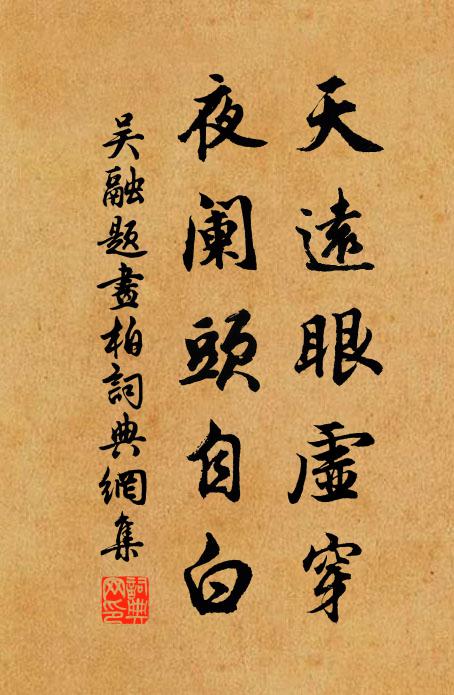 天遠眼虛穿
夜阑頭自白
吴融題畫柏詞典網集
詞典網印